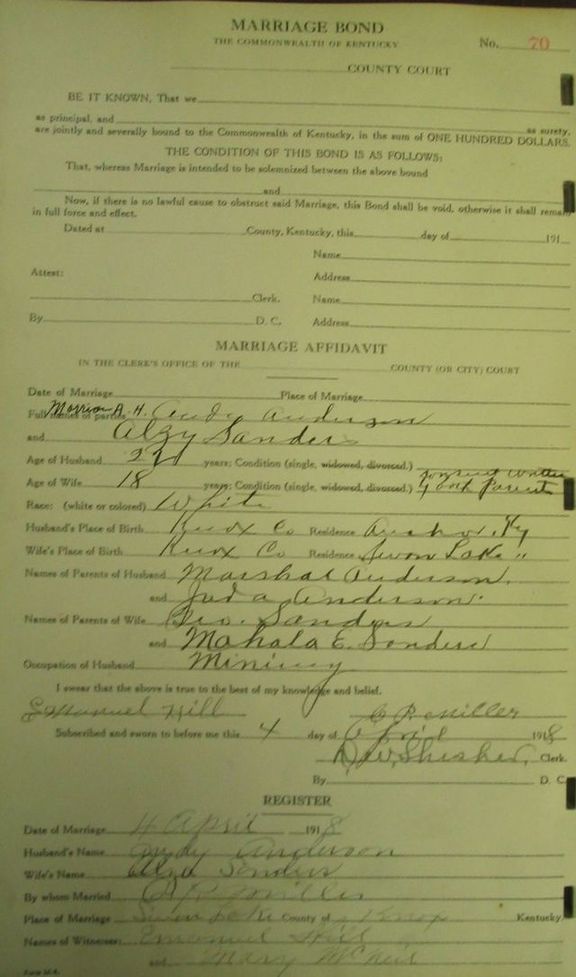 MARRIAGE BOND
THE COMMONWEALTH OF KENTUCKY
No. 70
COUNTY COURT
BE IT KNOWN, That we
as principal, and as surety,
are jointly and severally bound to the Commonwealth of Kentucky, in the sum of ONE HUNDRED DOLLARS.
THE CONDITION OF THIS BOND IS AS FOLLOWS:
That, whereas Marriage is intended to be solemnized between the above bound
and
Now, if there is no lawful cause to obstruct said Marriage, this Bond shall be void, otherwise it shall remain
in full force and effect.
Dated at County, Kentucky, this day of 191
Name
Attest: Address
Clerk. Name
By D. C. Address
MARRIAGE AFFIDAVIT
IN THE CLERK'S OFFICE OF THE COUNTY (OR CITY) COURT
Date of Marriage Place of Marriage
Full names of parties A. H. Andy Anderson
and Alzy Sanders
Age of Husband years; Condition (single, widowed, divorced.)
Age of Wife 18 years; Condition (single, widowed, divorced.) Both Parents
Race: (white or colored) White
Husband's Place of Birth Knox Co Residence Ky
Wife's Place of Birth Knox Co Residence Swan Lake "
Names of Parents of Husband Marshal Anderson.
and Juda Anderson.
Names of Parents of Wife Geo. Sanders
and Mahala E. Sanders
Occupation of Husband Mining
I swear that the above is true to the best of my knowledge and belief.
Emanuel Hill Miller
Subscribed and sworn to before me this 4 day of April 1918
Clerk.
By D. C.
REGISTER
Date of Marriage 4 April 1918
Husband's Name Andy Anderson
Wife's Name Sanders
By whom Married Miller
Place of Marriage Swan Lake County of Knox Kentucky.
Names of Witnesses: Emanuel Hill
and Mary